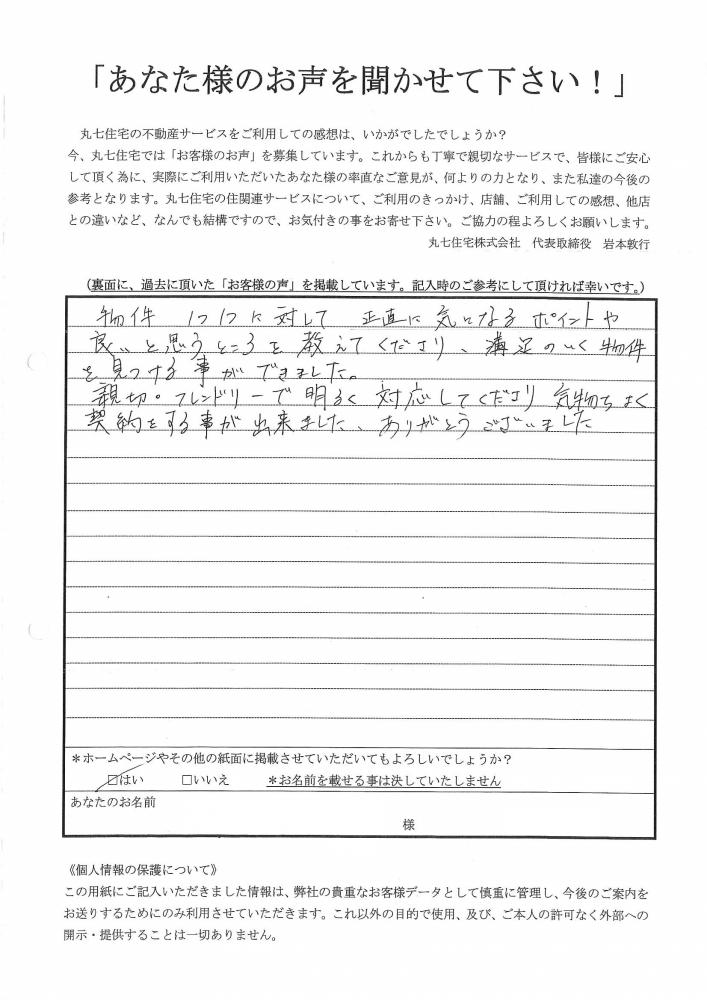 「あなた様のお声を聞かせて下さい！」
丸七住宅の不動産サービスをご利用しての感想は、いかがでしたでしょうか？
今、丸七住宅では「お客様のお声」を募集しています。これからも丁寧で親切なサービスで、皆様にご安心
して頂く為に、実際にご利用いただいたあなた様の率直なご意見が、何よりの力となり、また私達の今後の
参考となります。丸七住宅の住関連サービスについて、ご利用のきっかけ、店舗、ご利用しての感想、他店
との違いなど、なんでも結構ですので、お気付きの事をお寄せ下さい。ご協力の程よろしくお願いします。
丸七住宅株式会社　代表取締役　岩本敦行
（裏面に、過去に頂いた「お客様の声」を掲載しています。記入時のご参考にして頂ければ幸いです。）
物件　1つ1つに対して　正直に　気になる　ポイントや
良いと思うところを教えてくださり、満足のいく物件
を見つける事ができました。
親切・フレンドリーで明るく対応してくださり　気持ちよく
契約をする事が出来ました、ありがとうございました
＊ホームページやその他の紙面に掲載させていただいてもよろしいでしょうか？
☑はい　□いいえ　＊お名前を載せる事は決していたしません
あなたのお名前
様
《個人情報の保護について》
この用紙にご記入いただきました情報は、弊社の貴重なお客様データとして慎重に管理し、今後のご案内を
お送りするためにのみ利用させていただきます。これ以外の目的で使用、及び、ご本人の許可なく外部への
開示・提供することは一切ありません。